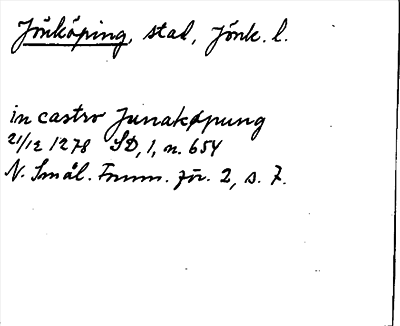 Jönköping, stad, Jönk. l.
in castro Junakøpung
21/12 1278 SD, 1, n. 654
N. Smål. Fornm. för. 2, s. 7.